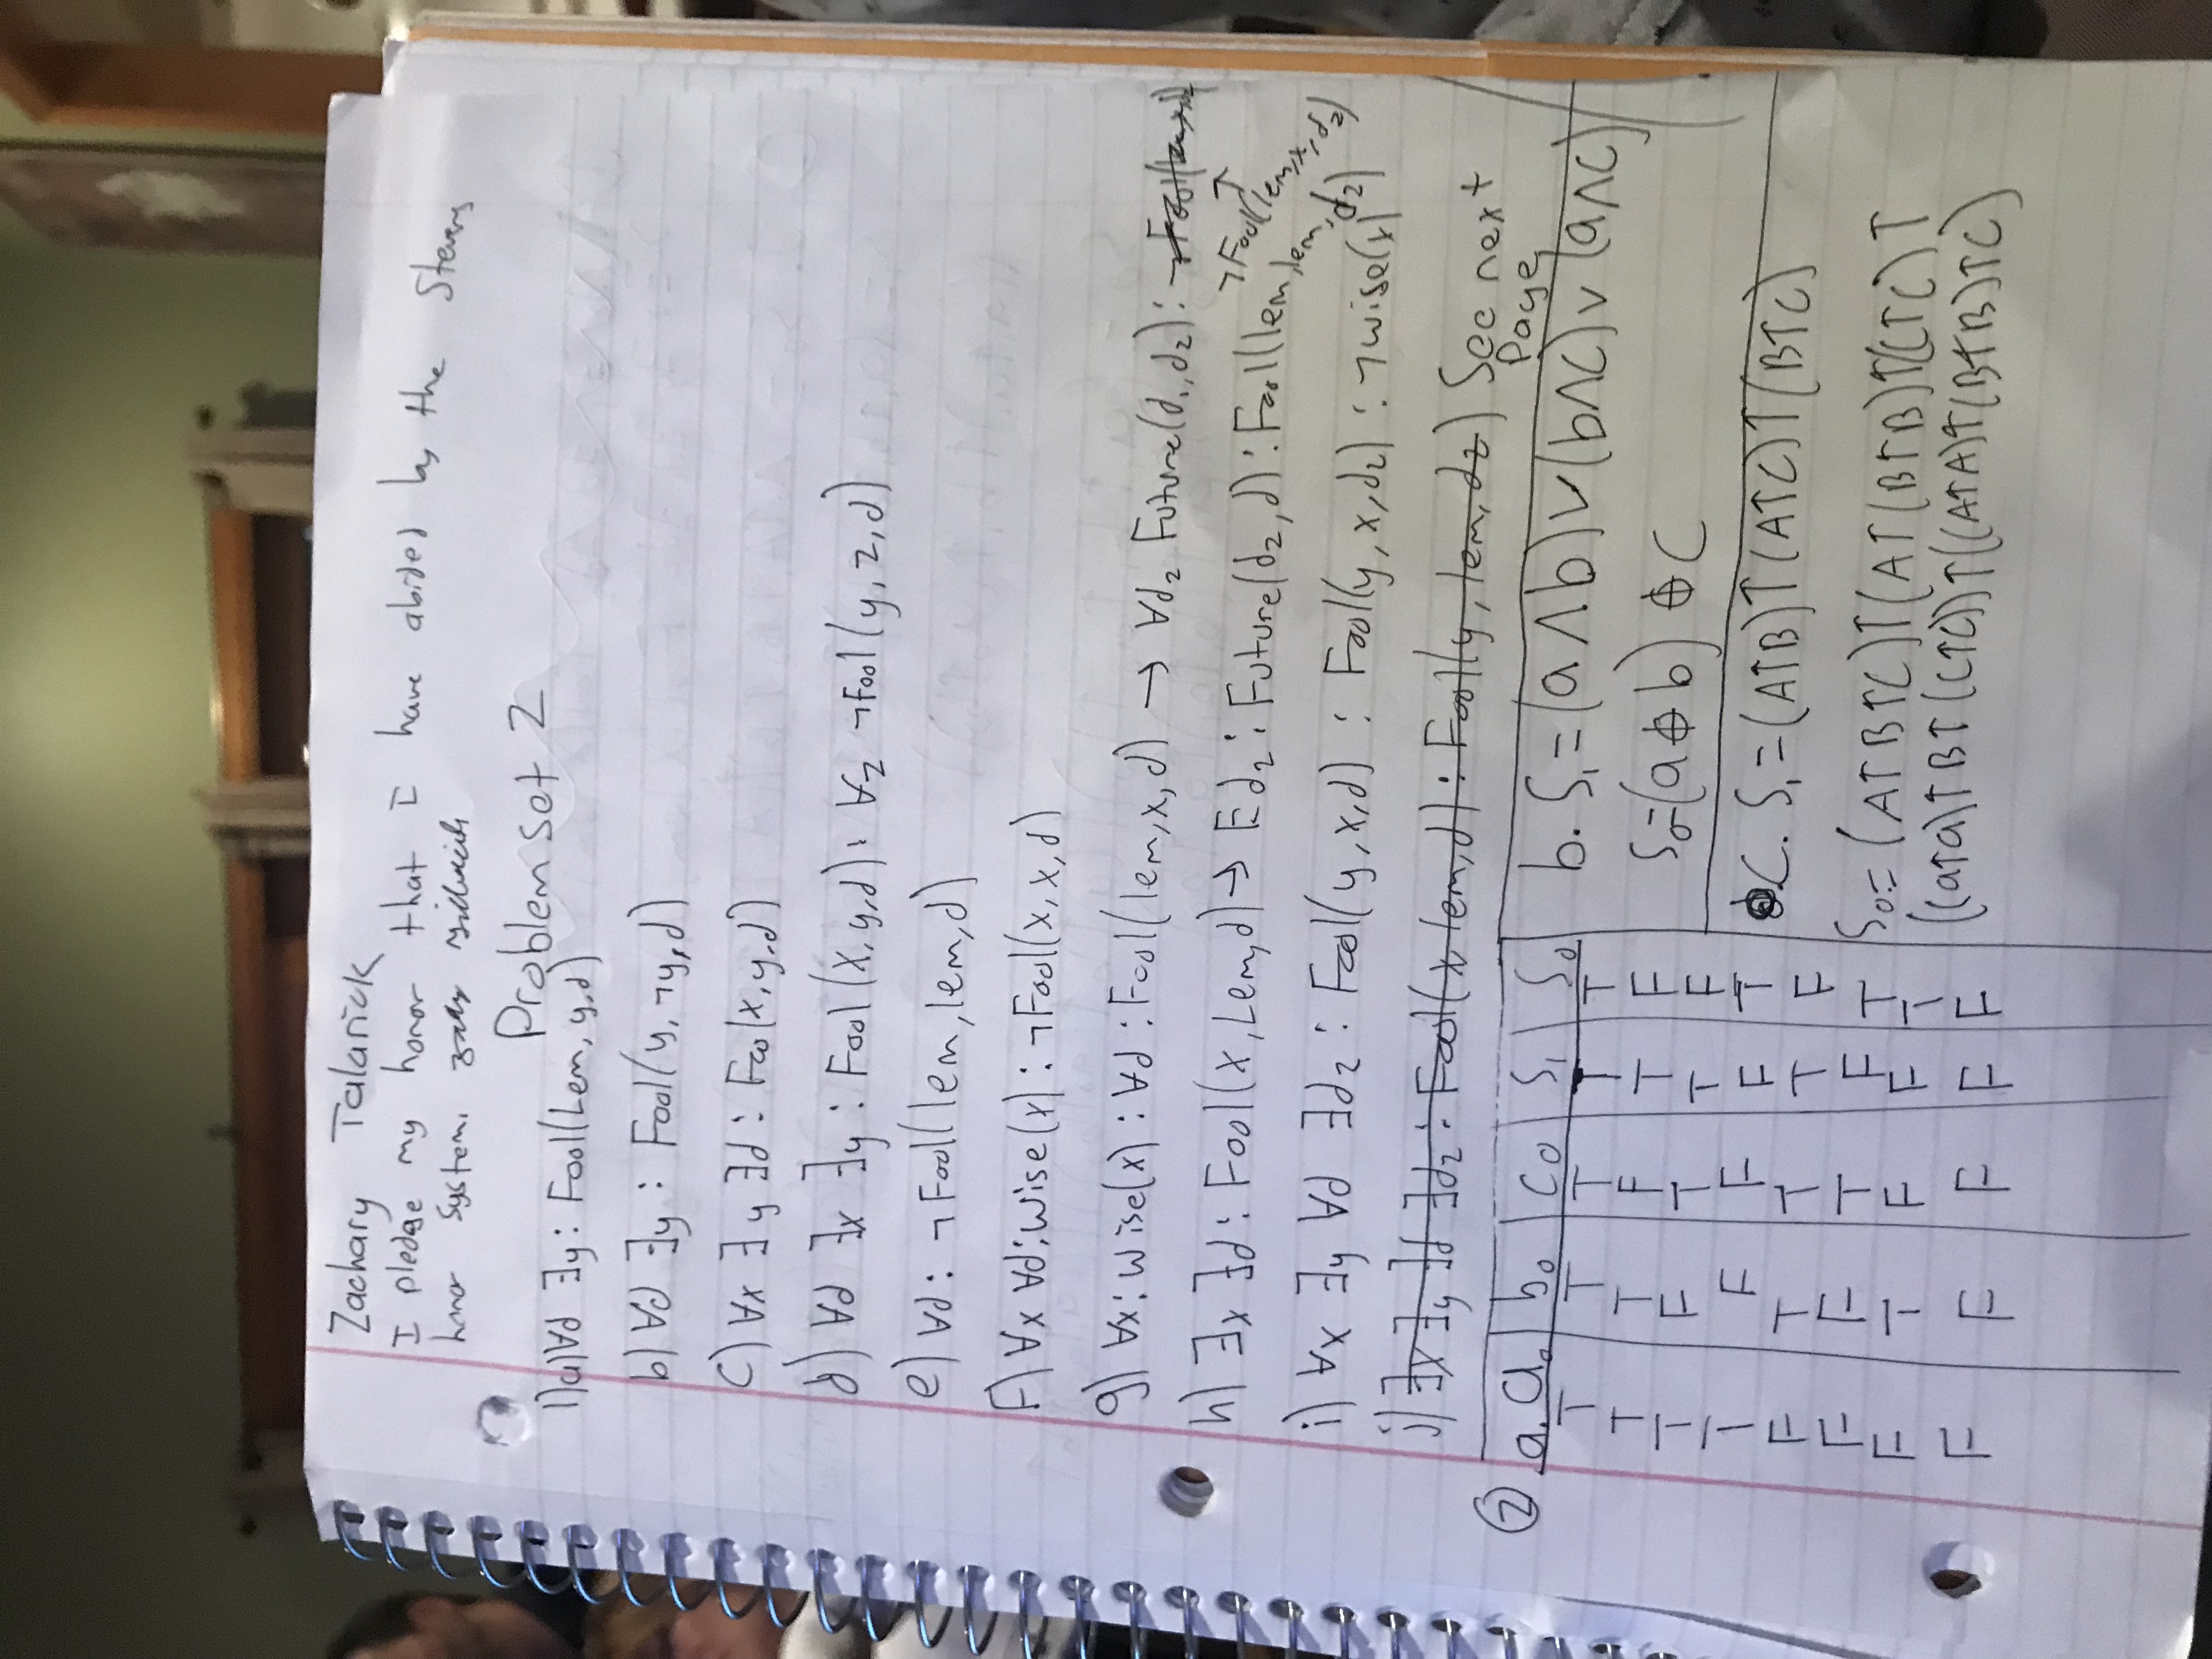 Zachary Talarick
I pledge my honor that I have abided by the Stevens
honor system.
Problem set 2
1)a)∀d ∃y: Fool(Lem, y,d)
b) ∀d ∃y : Fool(y, ¬y,d)
c) ∀x ∃y ∃d : Foo(x,y,d)
d) ∀d ∃x ∃y : Fool (x,y,d): ∀z ¬Fool(y,z,d)
e) ∀d: ¬Fool(lem,lem,d)
F) ∀x ∀d:wise(x): ¬Fool(x,x,d)
g) ∀x: wise(x) : ∀d : Fool(lem,x,d) → ∀d₂ Future(d,,d₂):
¬Fool(lem,x,d₂)
h) ∃x ∃d: Fool(x,Lem,d)→ Ed₂ : Future(d₂,d) : Fool(lem,lem,d₂)
i) ∀x ∃y ∀d ∃d₂ : Fool(y,x,d) : Fool(y,x,d₂) : ¬wise(x)
j) ∃x ∃y ∃d ∃d₂ : Fool(x lem,d) : Fool(y, lem,d₂) See next
Page
② a. a₀ b₀ c₀ S₁ S₀
T T T T T
T T F T F
T F T T F
T F F F T
F T T T F
F F T F T
F T F F T
F F F F F
b. S₁=(a∧b)∨(b∧c)∨(a∧c)
S₀=(a⊕b) ⊕ C
C. S₁=(A↑B)↑(A↑C)↑(B↑C)
S₀= (A↑B↑C)↑(A↑(B↑B)↑(C↑C)↑
((a↑a)↑B↑(C↑C))↑((A↑A)↑(B↑B)↑C)